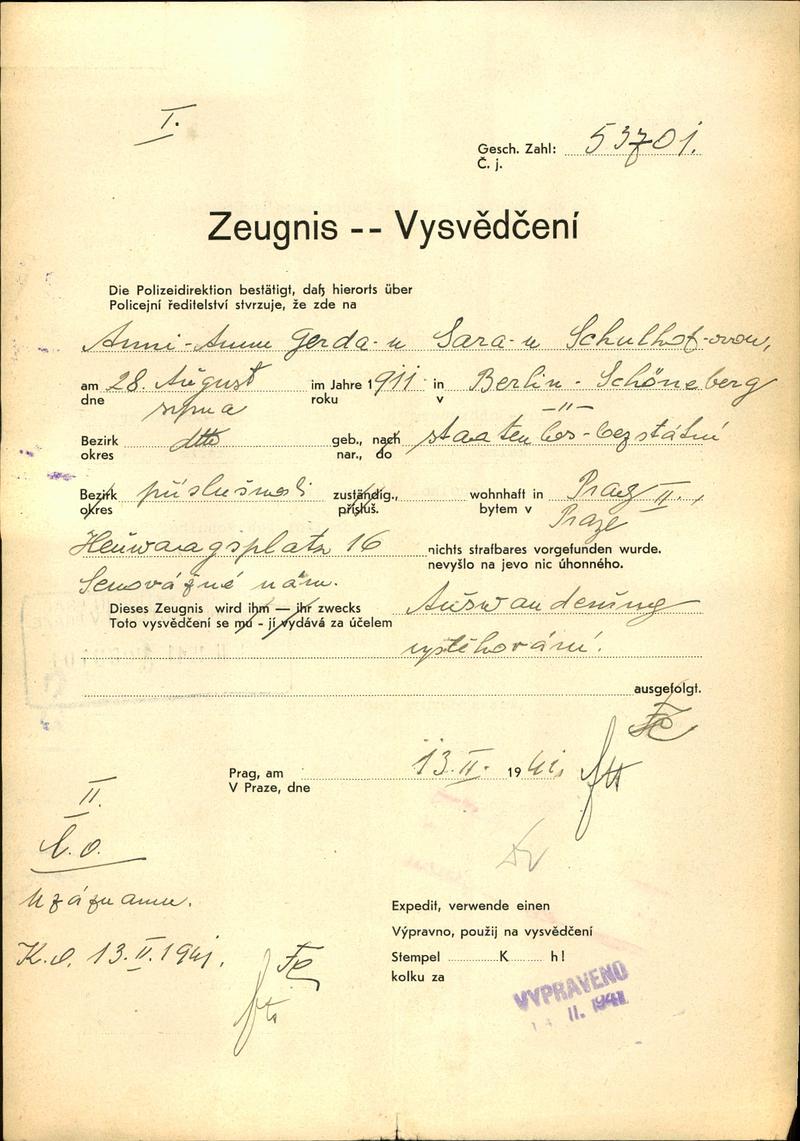 I.
Gesch. Zahl: 53701.
Č. j.
Zeugnis -- Vysvědčení
Die Polizeidirektion bestätigt, daß hierorts über
Policejní ředitelství stvrzuje, že zde na
Anni-Annu Gerda-u Sara-u Schulhof-ovou,
am 28. August im Jahre 1911 in Berlin - Schöneberg
dne srpna roku v -"-
Bezirk dtto geb., nach staatenlos-bezstátní
okres nar., do
Bezirk příslušnosti zuständig., wohnhaft in Prag II.,
okres přísluš. bytem v Praze
Heuwaagsplatz 16 nichts strafbares vorgefunden wurde.
Senovážné nám. nevyšlo na jevo nic úhonného.
Dieses Zeugnis wird ihm — ihr zwecks Auswanderung
Toto vysvědčení se mu - jí vydává za účelem
vystěhování.
ausgefolgt.
Prag, am 13. II. 1941.
V Praze, dne
II.
K záznamu.
Expedit, verwende einen
Výpravno, použij na vysvědčení
Stempel K h!
kolku za
K.d. 13. II. 1941.
VYPRAVENO
II. 1941